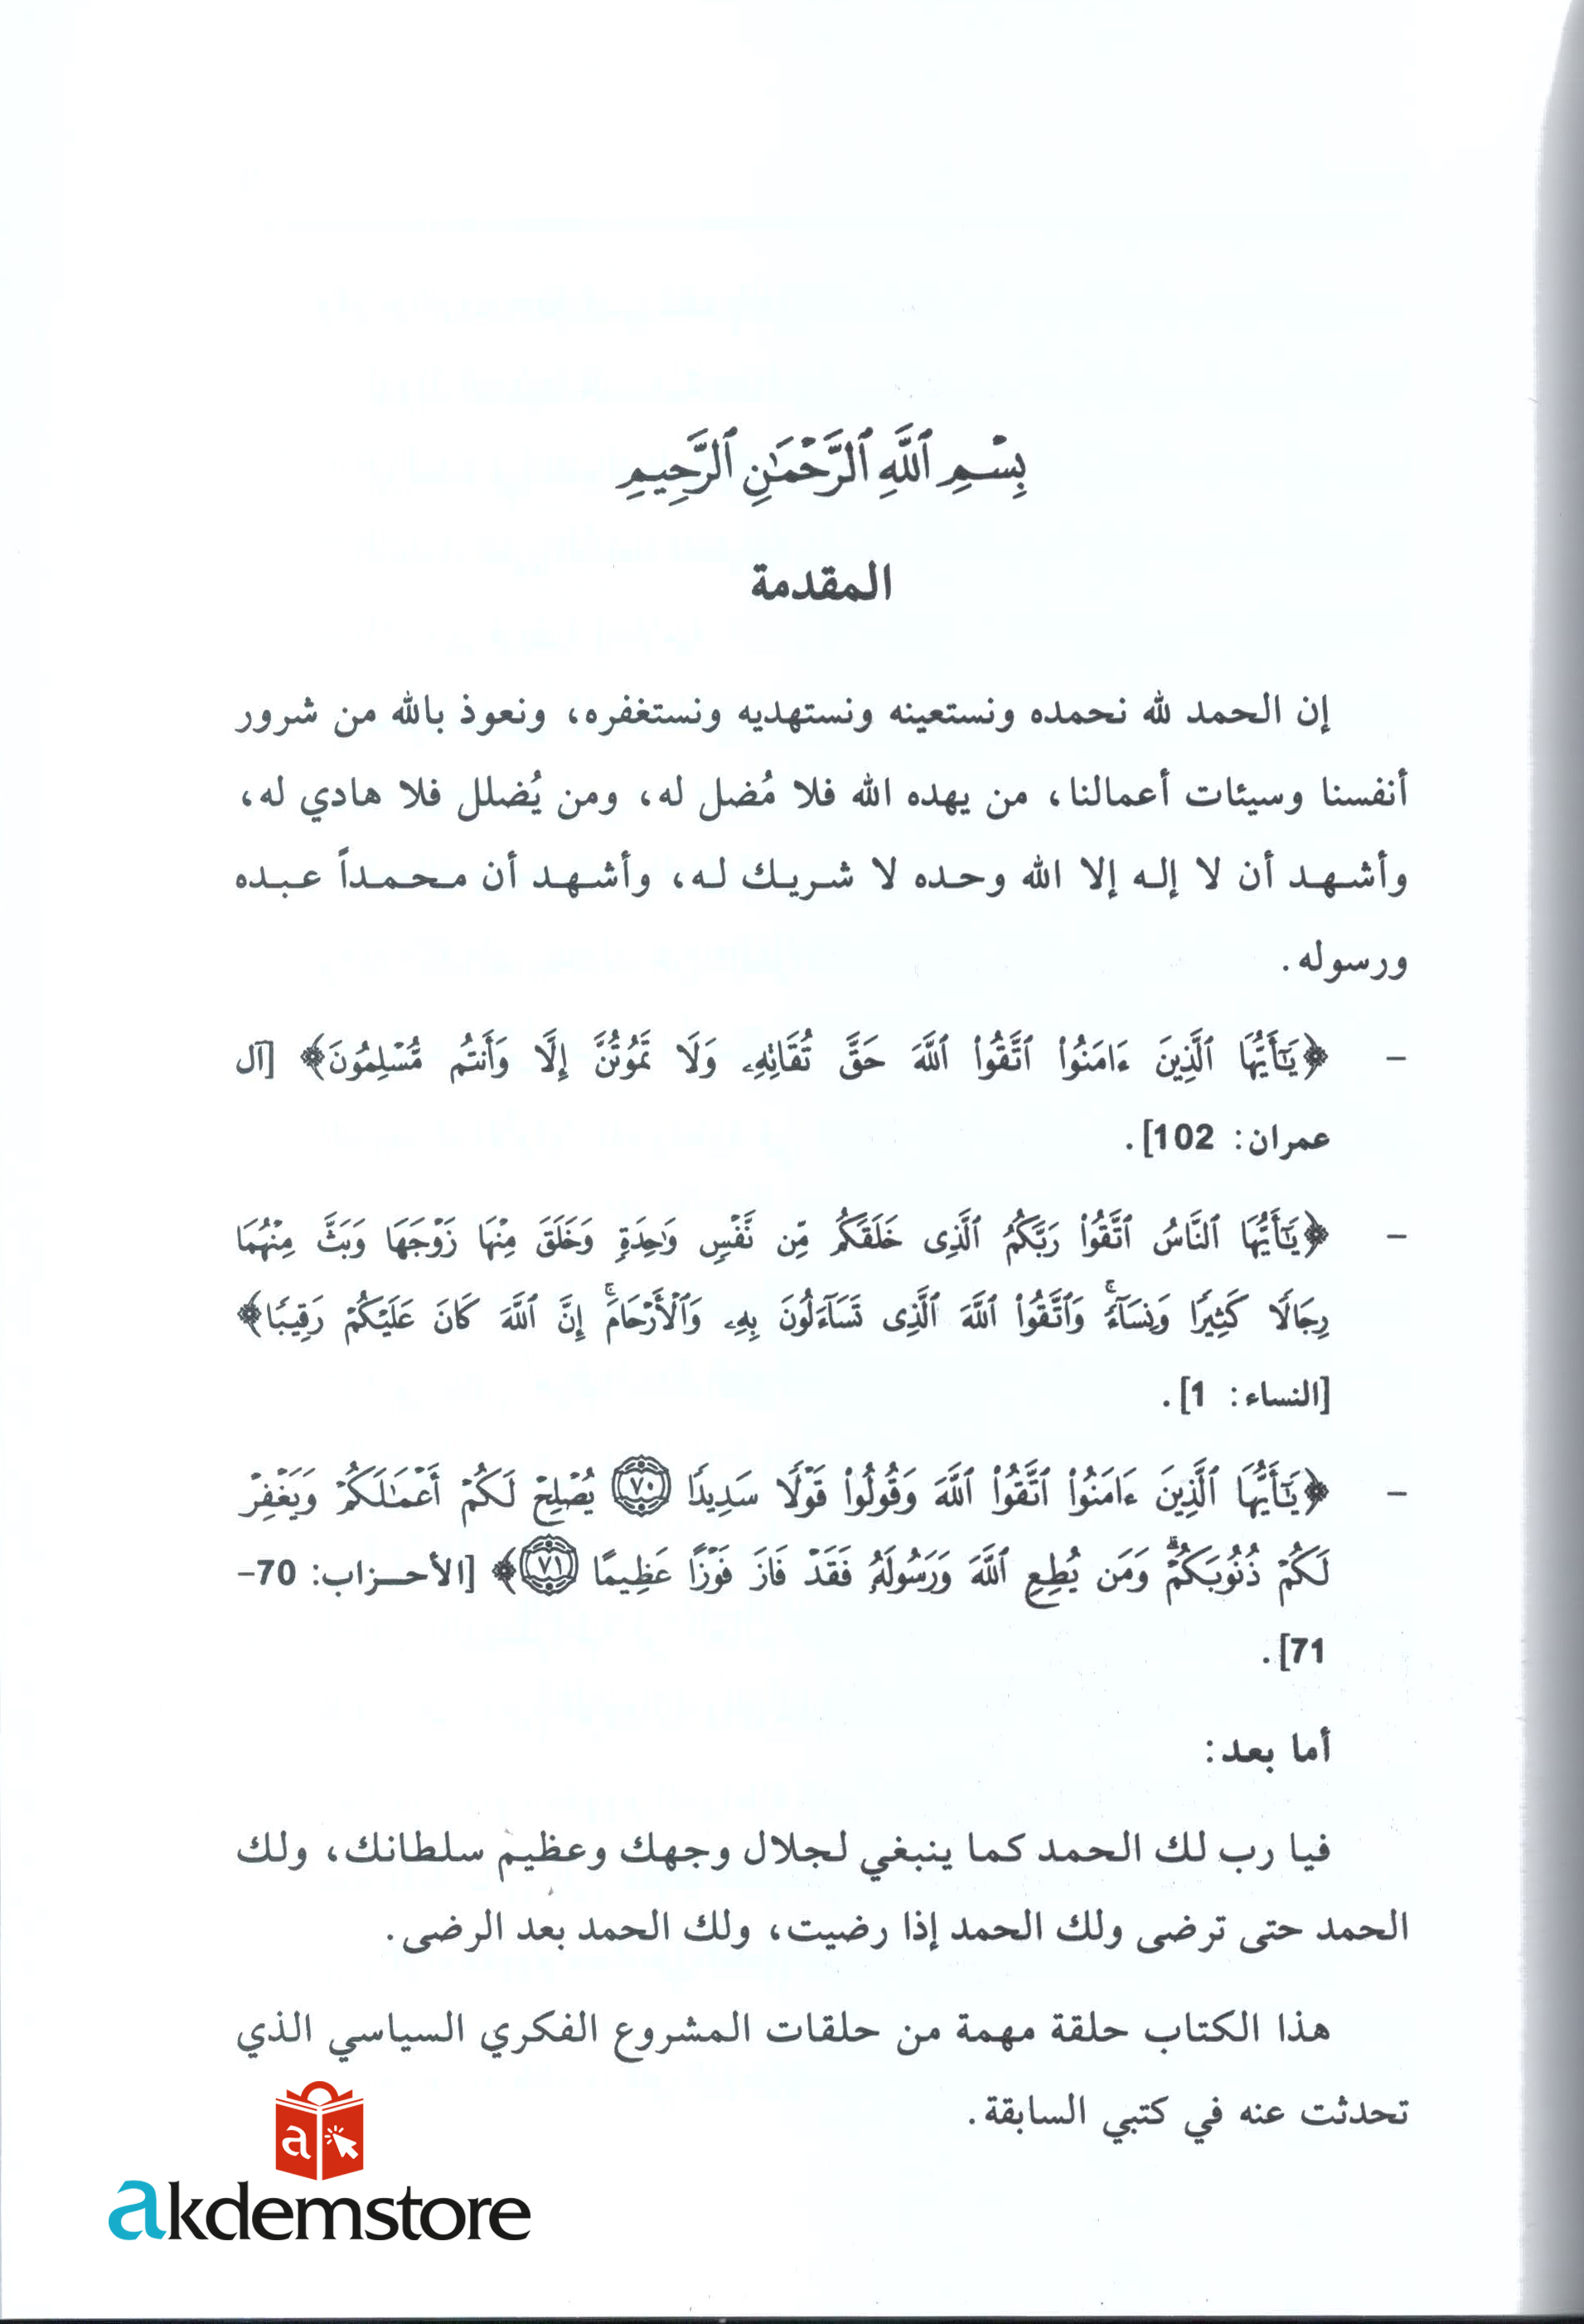 بِسْمِ ٱللَّهِ ٱلرَّحْمَٰنِ ٱلرَّحِيمِ
المقدمة
إن الحمد لله نحمده ونستعينه ونستهديه ونستغفره، ونعوذ بالله من شرور
أنفسنا وسيئات أعمالنا، من يهده الله فلا مُضل له، ومن يُضلل فلا هادي له،
وأشهد أن لا إله إلا الله وحده لا شريك له، وأشهد أن محمداً عبده
ورسوله.
- ﴿يَٰٓأَيُّهَا ٱلَّذِينَ ءَامَنُوا۟ ٱتَّقُوا۟ ٱللَّهَ حَقَّ تُقَاتِهِۦ وَلَا تَمُوتُنَّ إِلَّا وَأَنتُم مُّسْلِمُونَ﴾ [آل
عمران: 102].
- ﴿يَٰٓأَيُّهَا ٱلنَّاسُ ٱتَّقُوا۟ رَبَّكُمُ ٱلَّذِى خَلَقَكُم مِّن نَّفْسٍ وَٰحِدَةٍ وَخَلَقَ مِنْهَا زَوْجَهَا وَبَثَّ مِنْهُمَا
رِجَالًا كَثِيرًا وَنِسَآءً ۚ وَٱتَّقُوا۟ ٱللَّهَ ٱلَّذِى تَسَآءَلُونَ بِهِۦ وَٱلْأَرْحَامَ ۚ إِنَّ ٱللَّهَ كَانَ عَلَيْكُمْ رَقِيبًا﴾
[النساء: 1].
- ﴿يَٰٓأَيُّهَا ٱلَّذِينَ ءَامَنُوا۟ ٱتَّقُوا۟ ٱللَّهَ وَقُولُوا۟ قَوْلًا سَدِيدًا ٧٠ يُصْلِحْ لَكُمْ أَعْمَٰلَكُمْ وَيَغْفِرْ
لَكُمْ ذُنُوبَكُمْ ۗ وَمَن يُطِعِ ٱللَّهَ وَرَسُولَهُۥ فَقَدْ فَازَ فَوْزًا عَظِيمًا ٧١﴾ [الأحزاب: 70-
71].
أما بعد:
فيا رب لك الحمد كما ينبغي لجلال وجهك وعظيم سلطانك، ولك
الحمد حتى ترضى ولك الحمد إذا رضيت، ولك الحمد بعد الرضى.
هذا الكتاب حلقة مهمة من حلقات المشروع الفكري السياسي الذي
تحدثت عنه في كتبي السابقة.
a
akdemstore